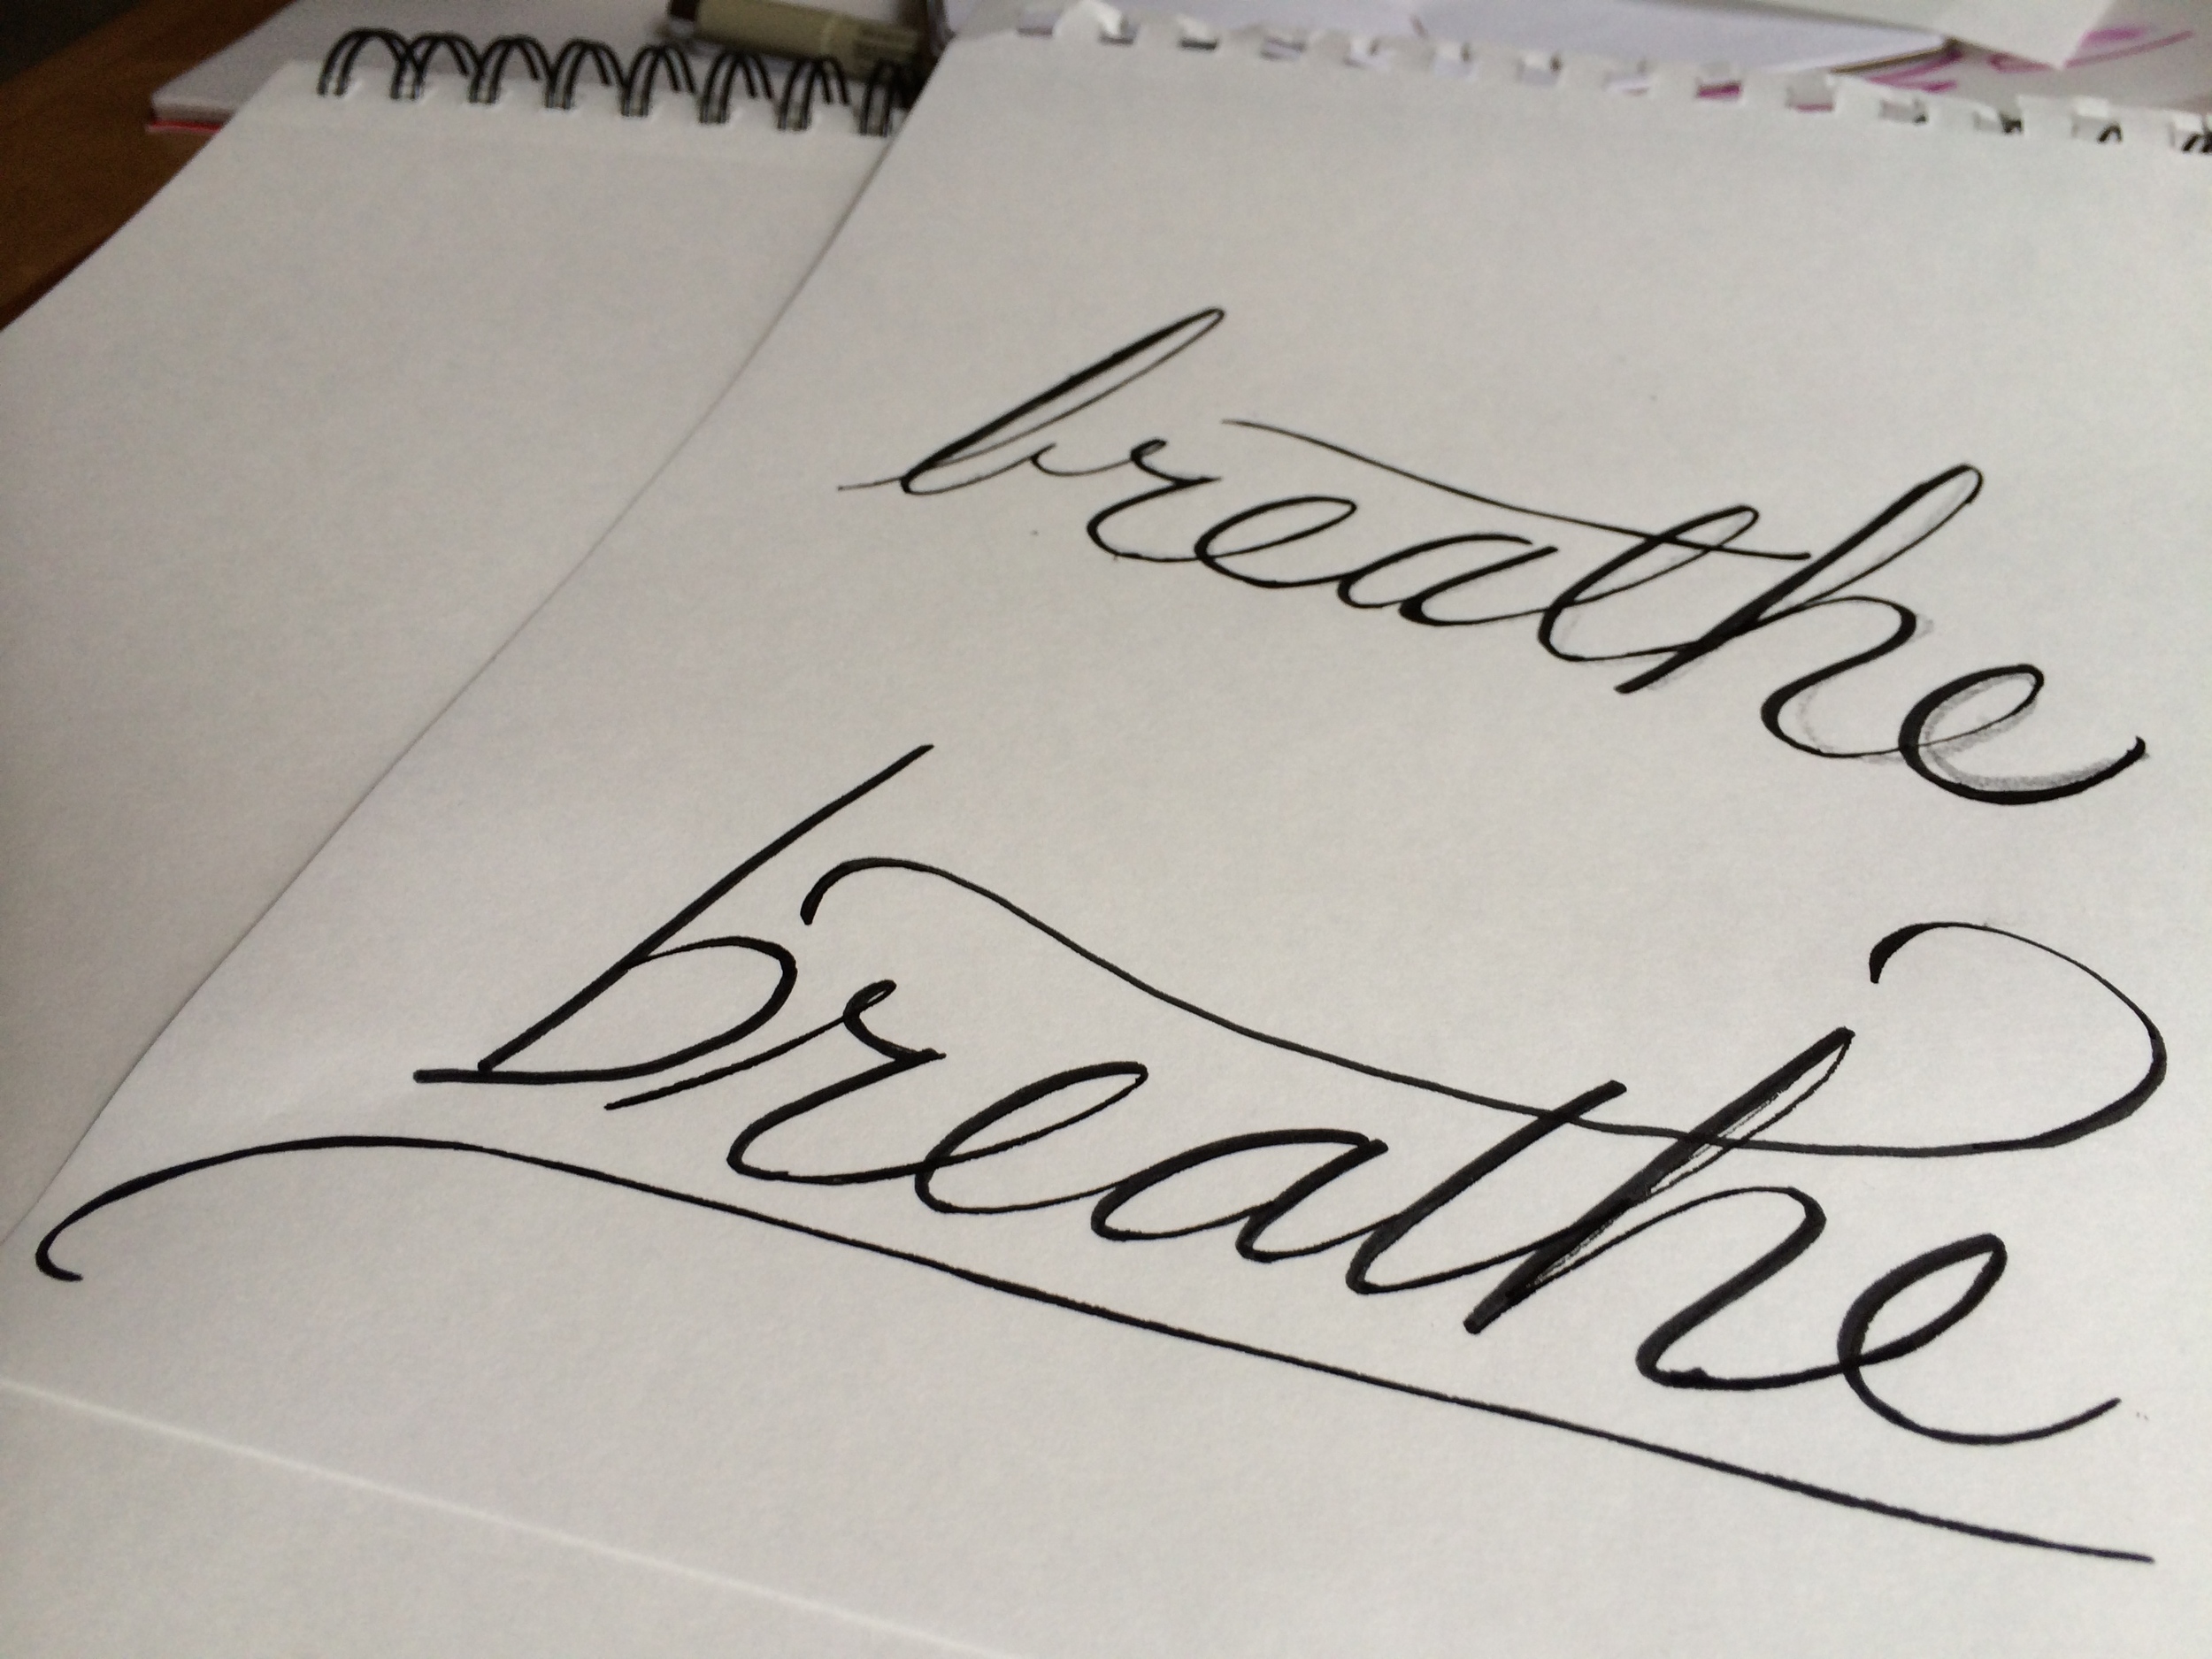 breathe
breathe